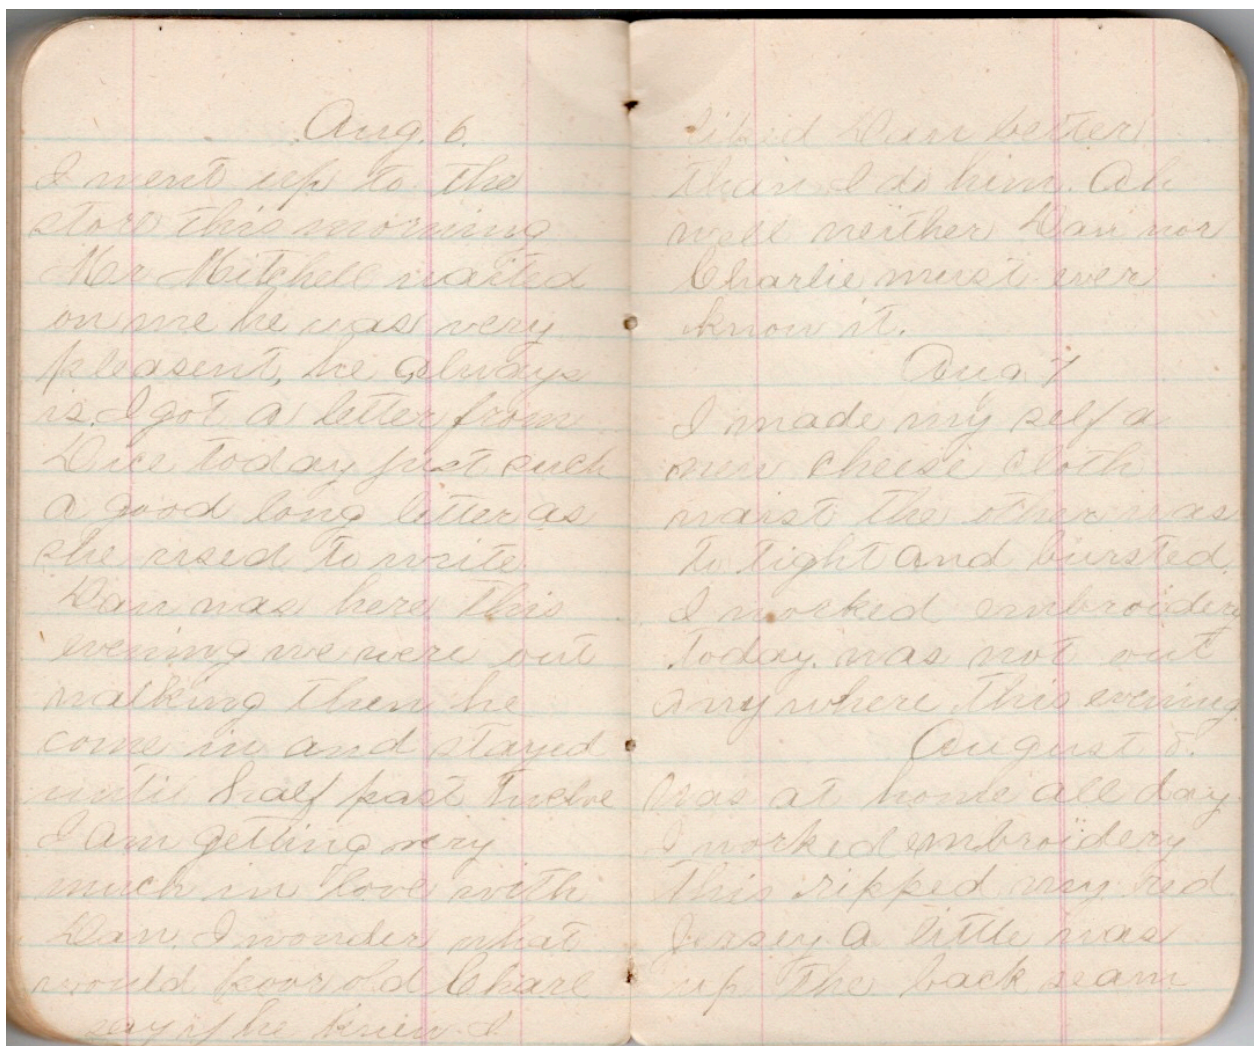 Aug. 6.
I went up to the
store this morning
Mr Mitchell waited
on me he was very
pleasent, he always
is. I got a letter from
Dice today just such
a good long letter as
she used to write
Dan was here this
evening we were out
walking then he
come in and stayed
until half past twelve
I am getting very
much in love with
Dan. I wonder what
would poor old Charl
say if he knew I
liked Dan better
than I do him. Ah
well neither Dan nor
Charlie must ever
know it.
Aug 7
I made my self a
new cheese cloth
waist the other was
to tight and bursted.
I worked embroidery
today. was not out
any where this evening
August 8.
Was at home all day
I worked embroidery
this ripped my red
Jersey a little was
up the back seam